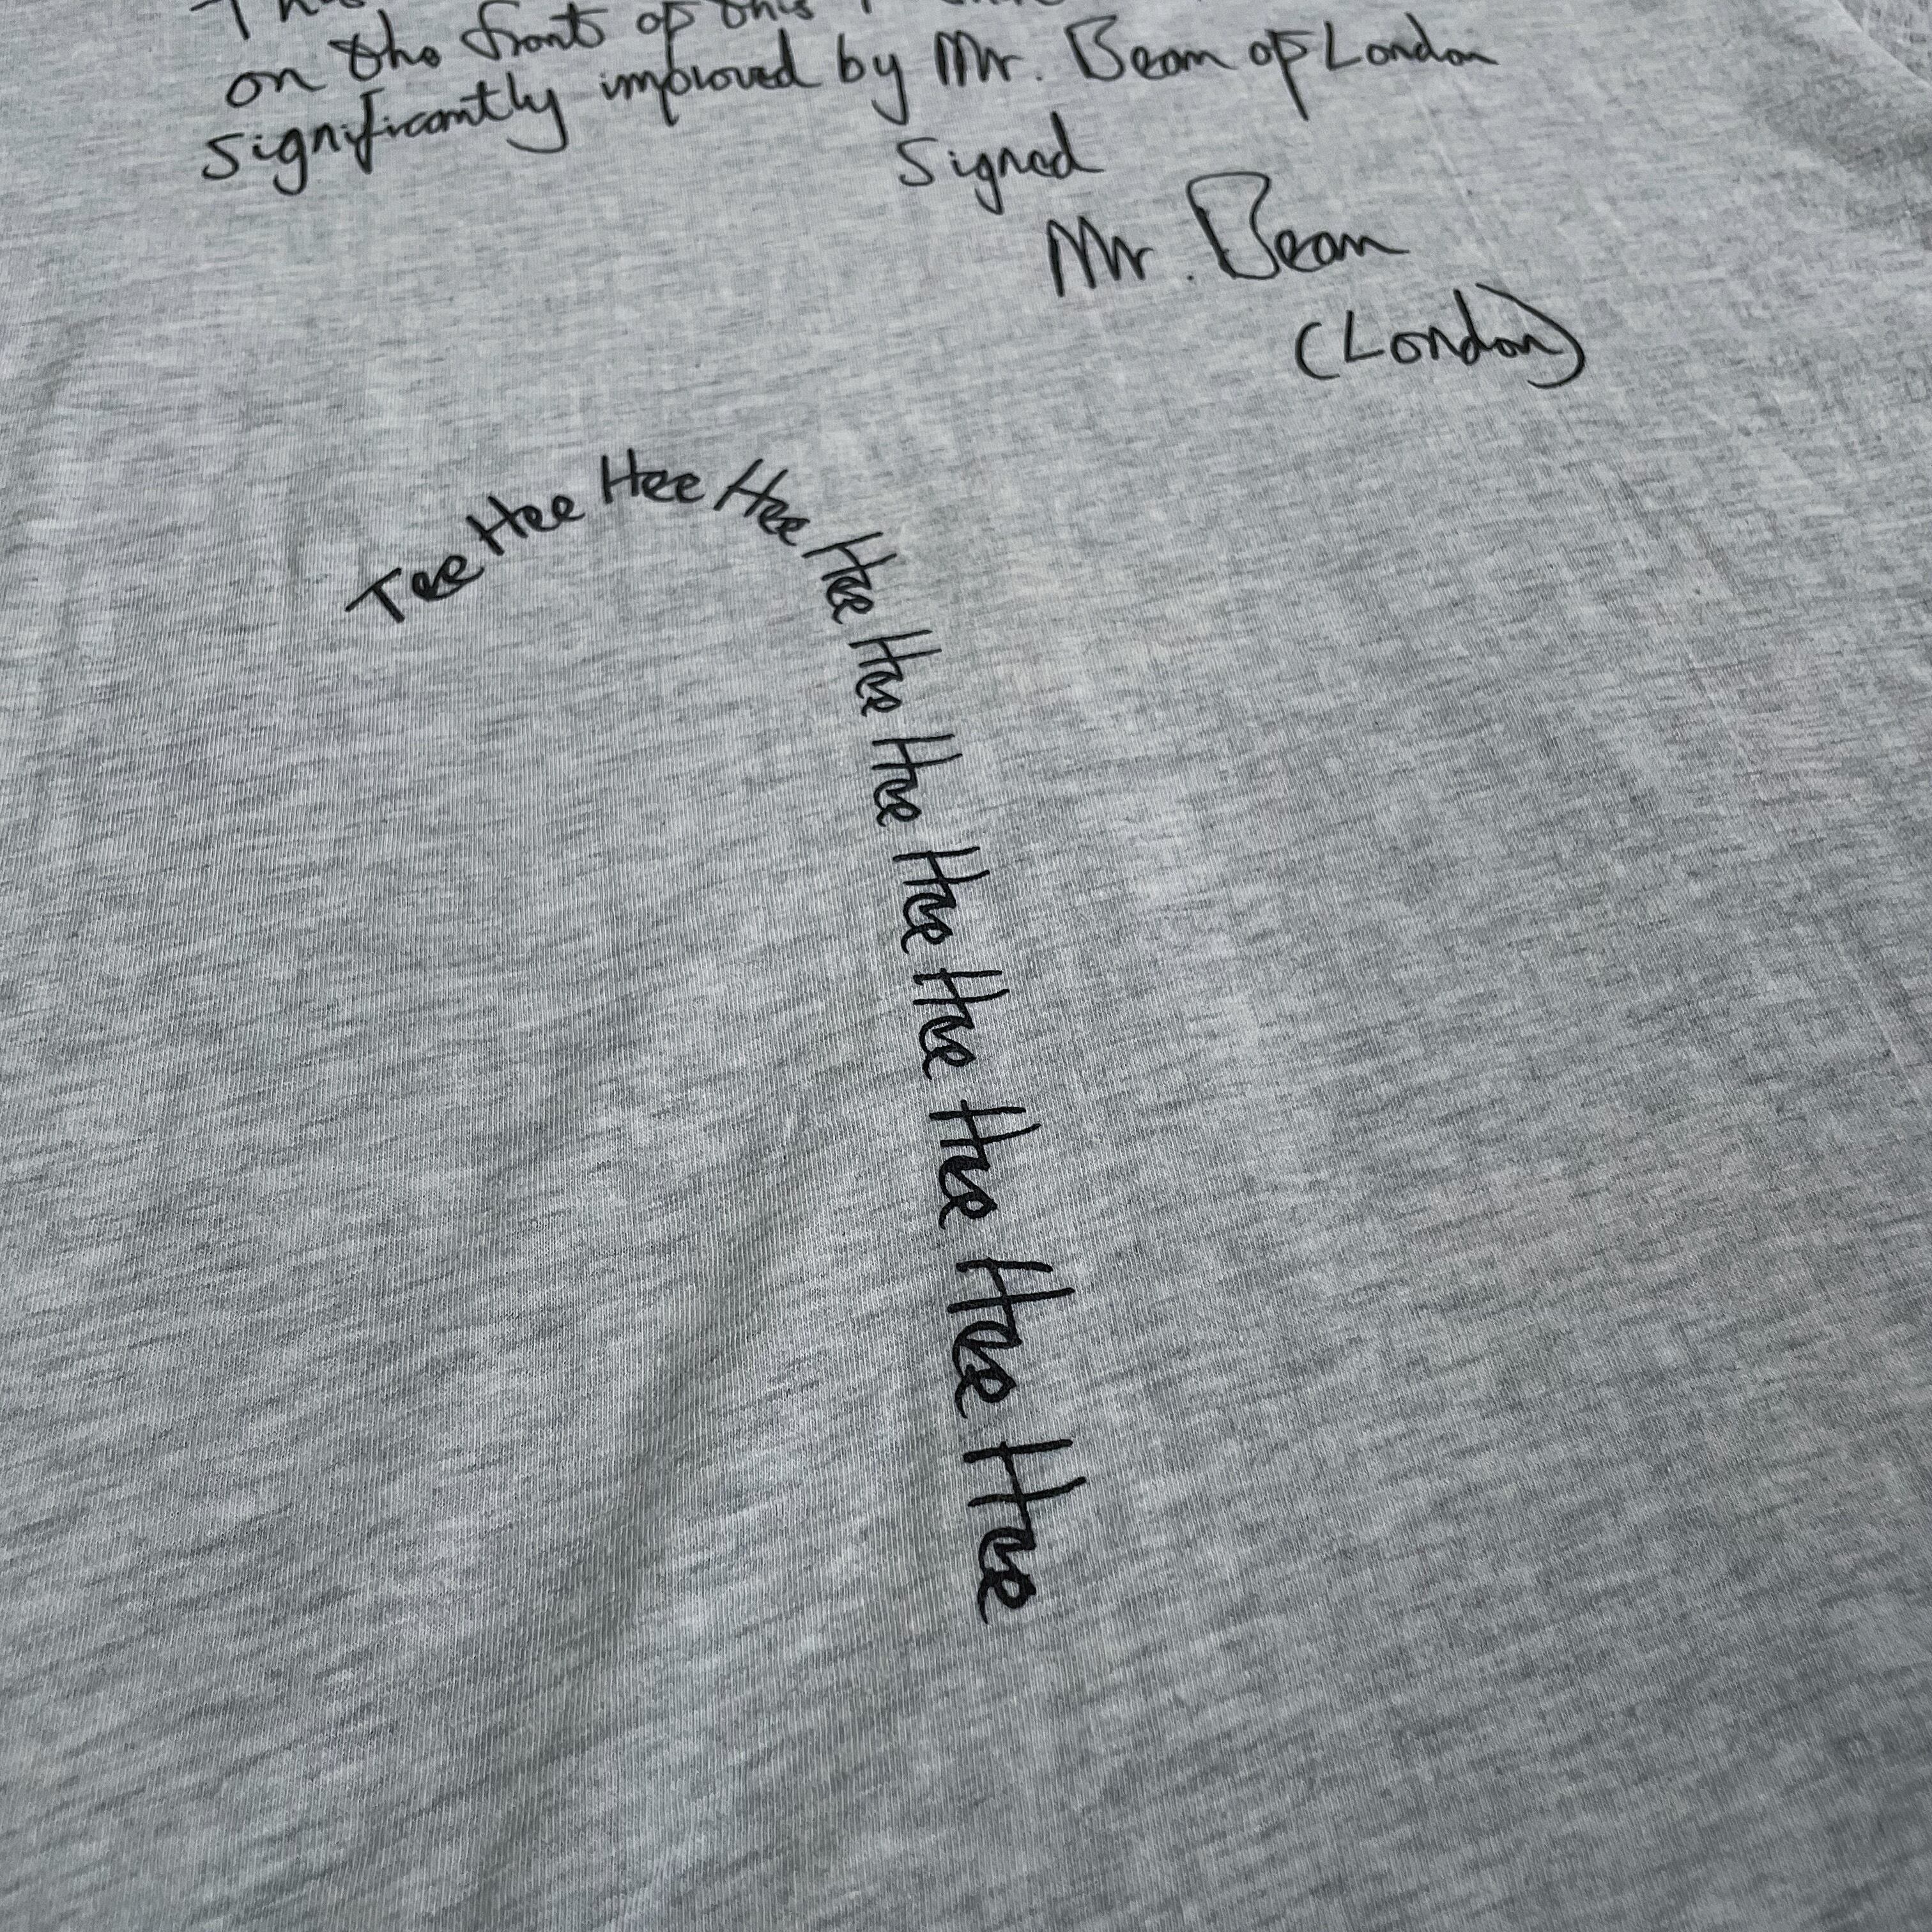 on the front of this
significantly improved by Mr. Bean of London
Signed
Mr. Bean
(London)
Tee Hee Hee Hee Hee Hee Hee Hee Hee Hee Hee Hee